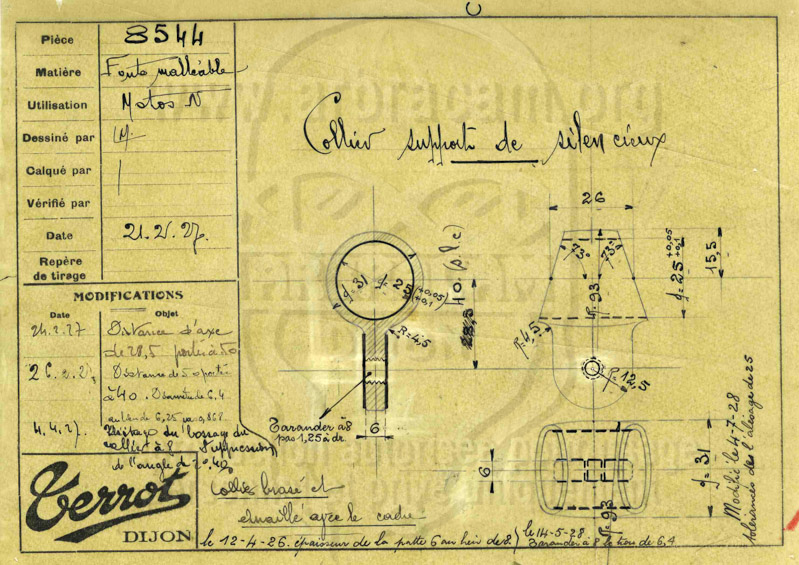 Pièce 8544
Matière Fonte malléable
Utilisation Motos N
Dessiné par
Calqué par
Vérifié par
Date 21.2.27.
Repère
de tirage
MODIFICATIONS
Date Objet
24.2.27 Distance d'axe
de 28,5 portée à 50
Distance de 50 portée
à 40. Diamètre de 6,4
au lieu de 6,25
4.4.27. du bossage du
collier à 8. Suppression
de l'angle d 20.40
Terrot
DIJON
Collier support de silencieux
26
73° 73°
R=93
R=4,5
d=25 +0,05 +0,1
15,5
d=31 d=25 +0,05 +0,1
40 (p.l.c)
28,5
R=4,5
R=12,5
Tarauder à 8
pas 1,25 à dr.
6
6
d=31
R=93
Modifié le 4-7-28
tolérances de l'alésage de 25
Collier brasé et
émaillé avec le cadre
le 12-4-26. épaisseur de la patte 6 au lieu de 8.
le 14-5-28
Tarauder à 8 le trou de 6,4